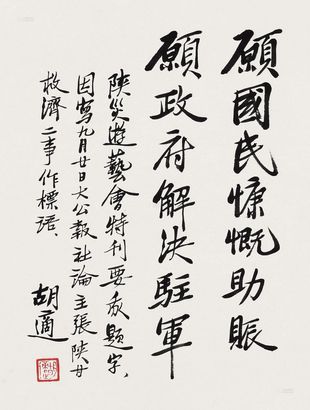 願國民慷慨助賑
願政府解決駐軍
陝災遊藝會特刊要我題字，
因寫九月廿日大公報社論主張陝甘
救濟二事作標語、
胡適